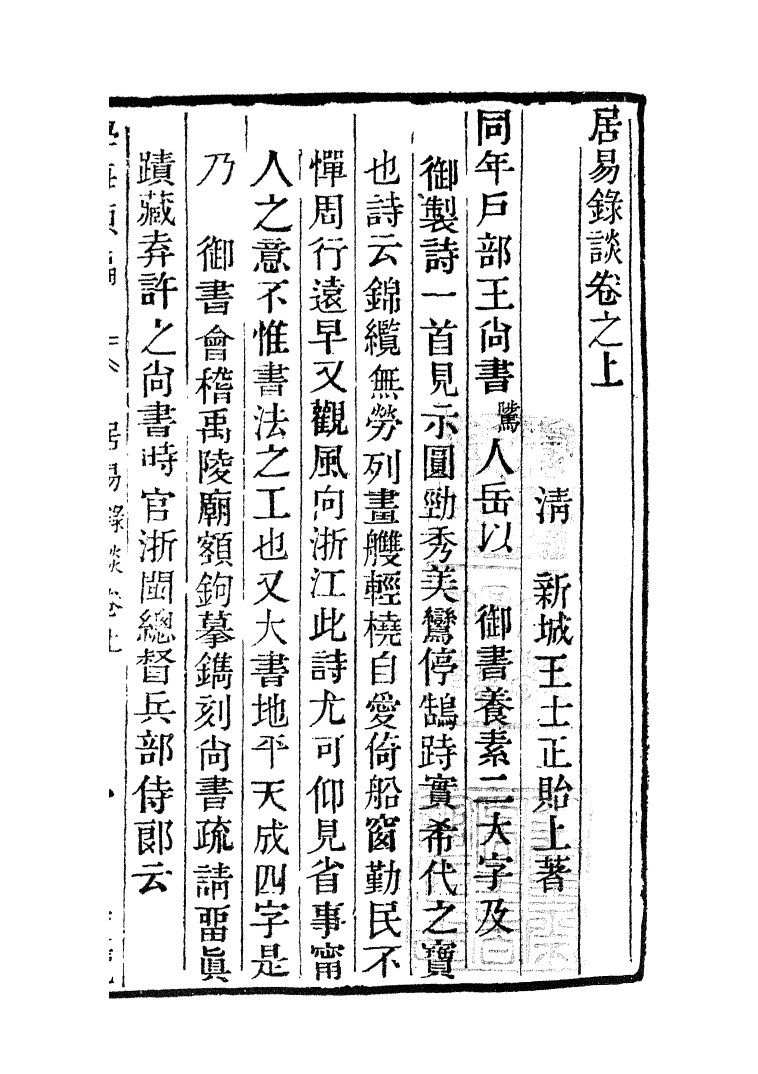 居易錄談卷之上
清　新城王士正貽上著
同年戶部王尙書騭人岳以　御書養素二大字及
御製詩一首見示圓勁秀美鸞停鵠跱實希代之寶
也詩云錦纜無勞列畫艭輕橈自愛倚船窗勤民不
憚周行遠早又觀風向浙江此詩尤可仰見省事甯
人之意不惟書法之工也又大書地平天成四字是
乃　御書會稽禹陵廟額鉤摹鐫刻尙書疏請畱眞
蹟藏弆許之尙書時官浙閩總督兵部侍郞云
居易錄談卷上